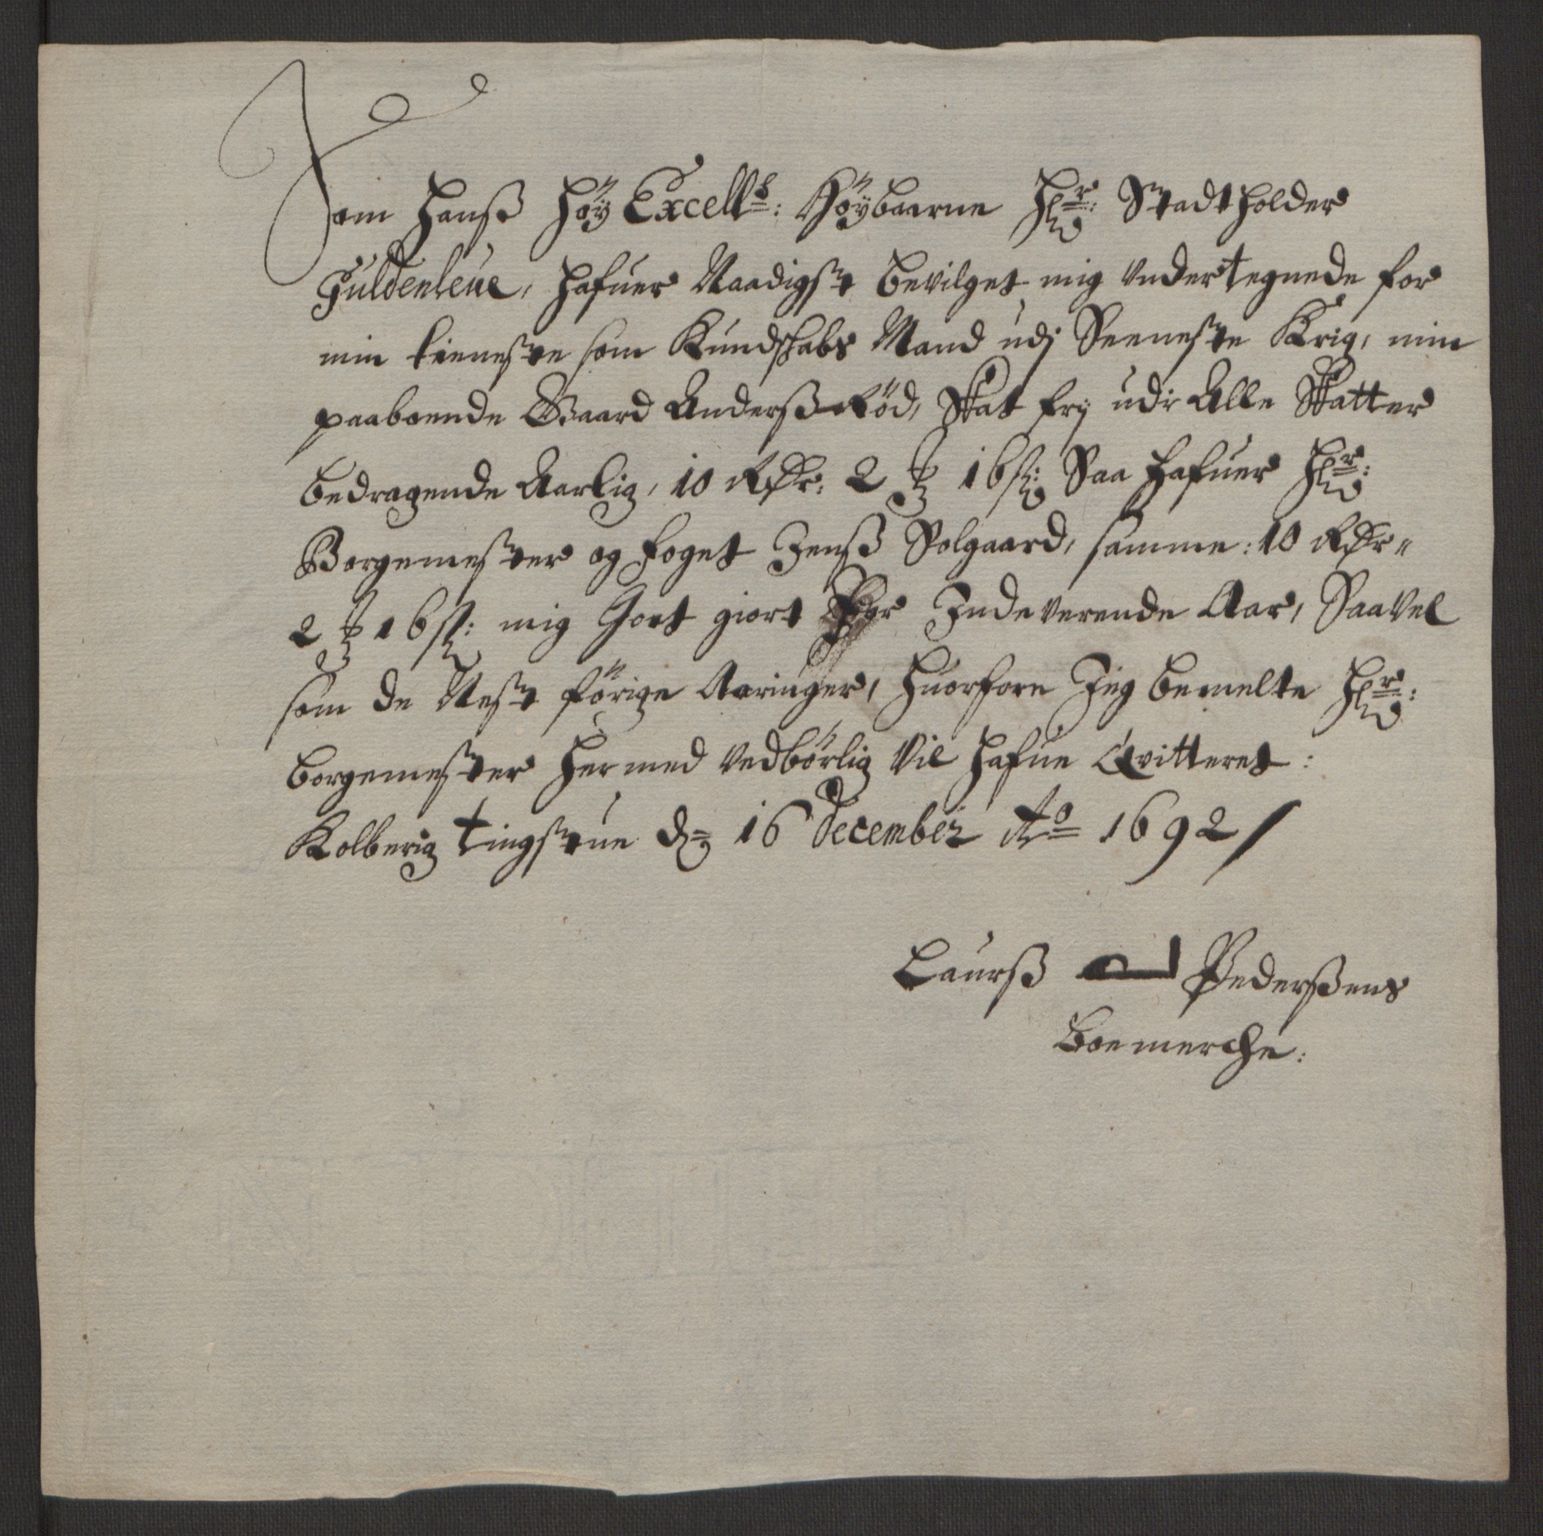 Som Hanß Höy Excell<sup>s</sup>: Höybaarne H<sup>r</sup>: Stadtholder
Guldenleue, hafuer Naadigst bevilget mig vndertegnede for
min tieneste som Kundschabs Mand udj Seeneste Krig, min
paaboende Gaard Anderßröd, Skat frij udi Alle Skatter
bedragende Aarlig, 10 Rdr: 2 ₰ 16 ß: Saa hafuer H<sup>r</sup>:
Borgemester og foget Jenß Solgaard, samme: 10 Rdr=
2 ₰ 16 ß: mig Gott giort For Indeverende Aar, Saavel
som de Nest förige Aaringer, huorfore Jeg bemelte H<sup>r</sup>:
borgemester hermed vedbörlig vil hafue Qvitteret:
Kolberig tingstue d= 16 December A<sup>o</sup> 1692/
Laurß Pederßens
Boemerche: